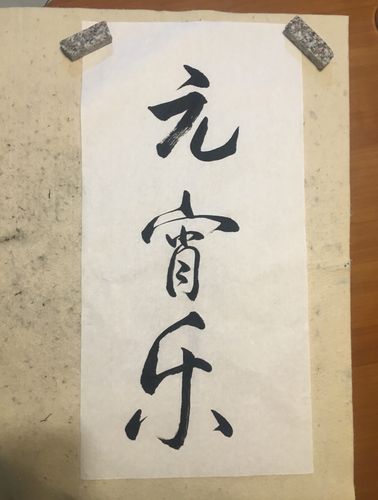 元宵乐